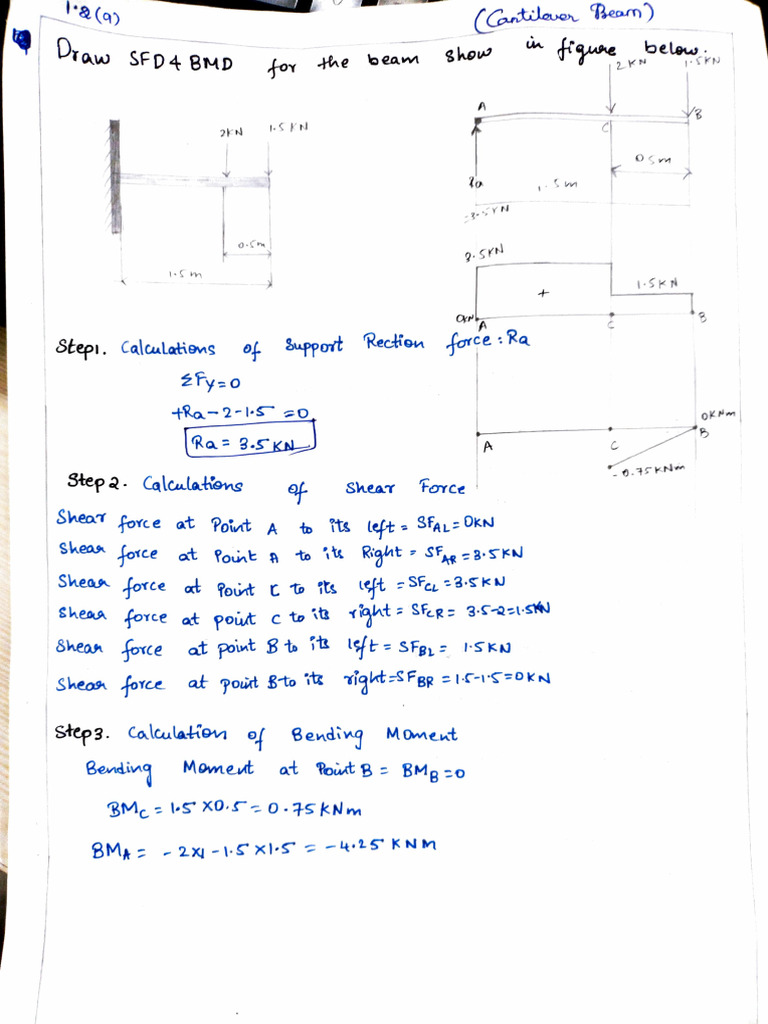 1.2(a)
(Cantilever Beam)
Draw SFD & BMD for the beam show in figure below.
2KN 1.5KN
A C B
0.5m
1.5m
Ra
=3.5KN
2KN 1.5KN
0.5m
1.5m
3.5KN
1.5KN
+
0KN A C B
Step1. Calculations of Support Rection force: Ra
ΣFy=0
+Ra-2-1.5=0
Ra = 3.5KN
0KNm
A C B
-0.75KNm
Step2. Calculations of Shear Force
Shear force at Point A to its left = SFAL=0KN
Shear force at Point A to its Right = SFAR=3.5KN
Shear force at Point C to its left = SFCL=3.5KN
Shear force at point C to its right= SFCR= 3.5-2=1.5KN
Shear force at point B to its left = SFBL= 1.5KN
Shear force at point B to its right=SFBR=1.5-1.5=0KN
Step3. Calculation of Bending Moment
Bending Moment at Point B = BMB=0
BMC=1.5×0.5=0.75KNm
BMA= -2×1-1.5×1.5=-4.25KNM